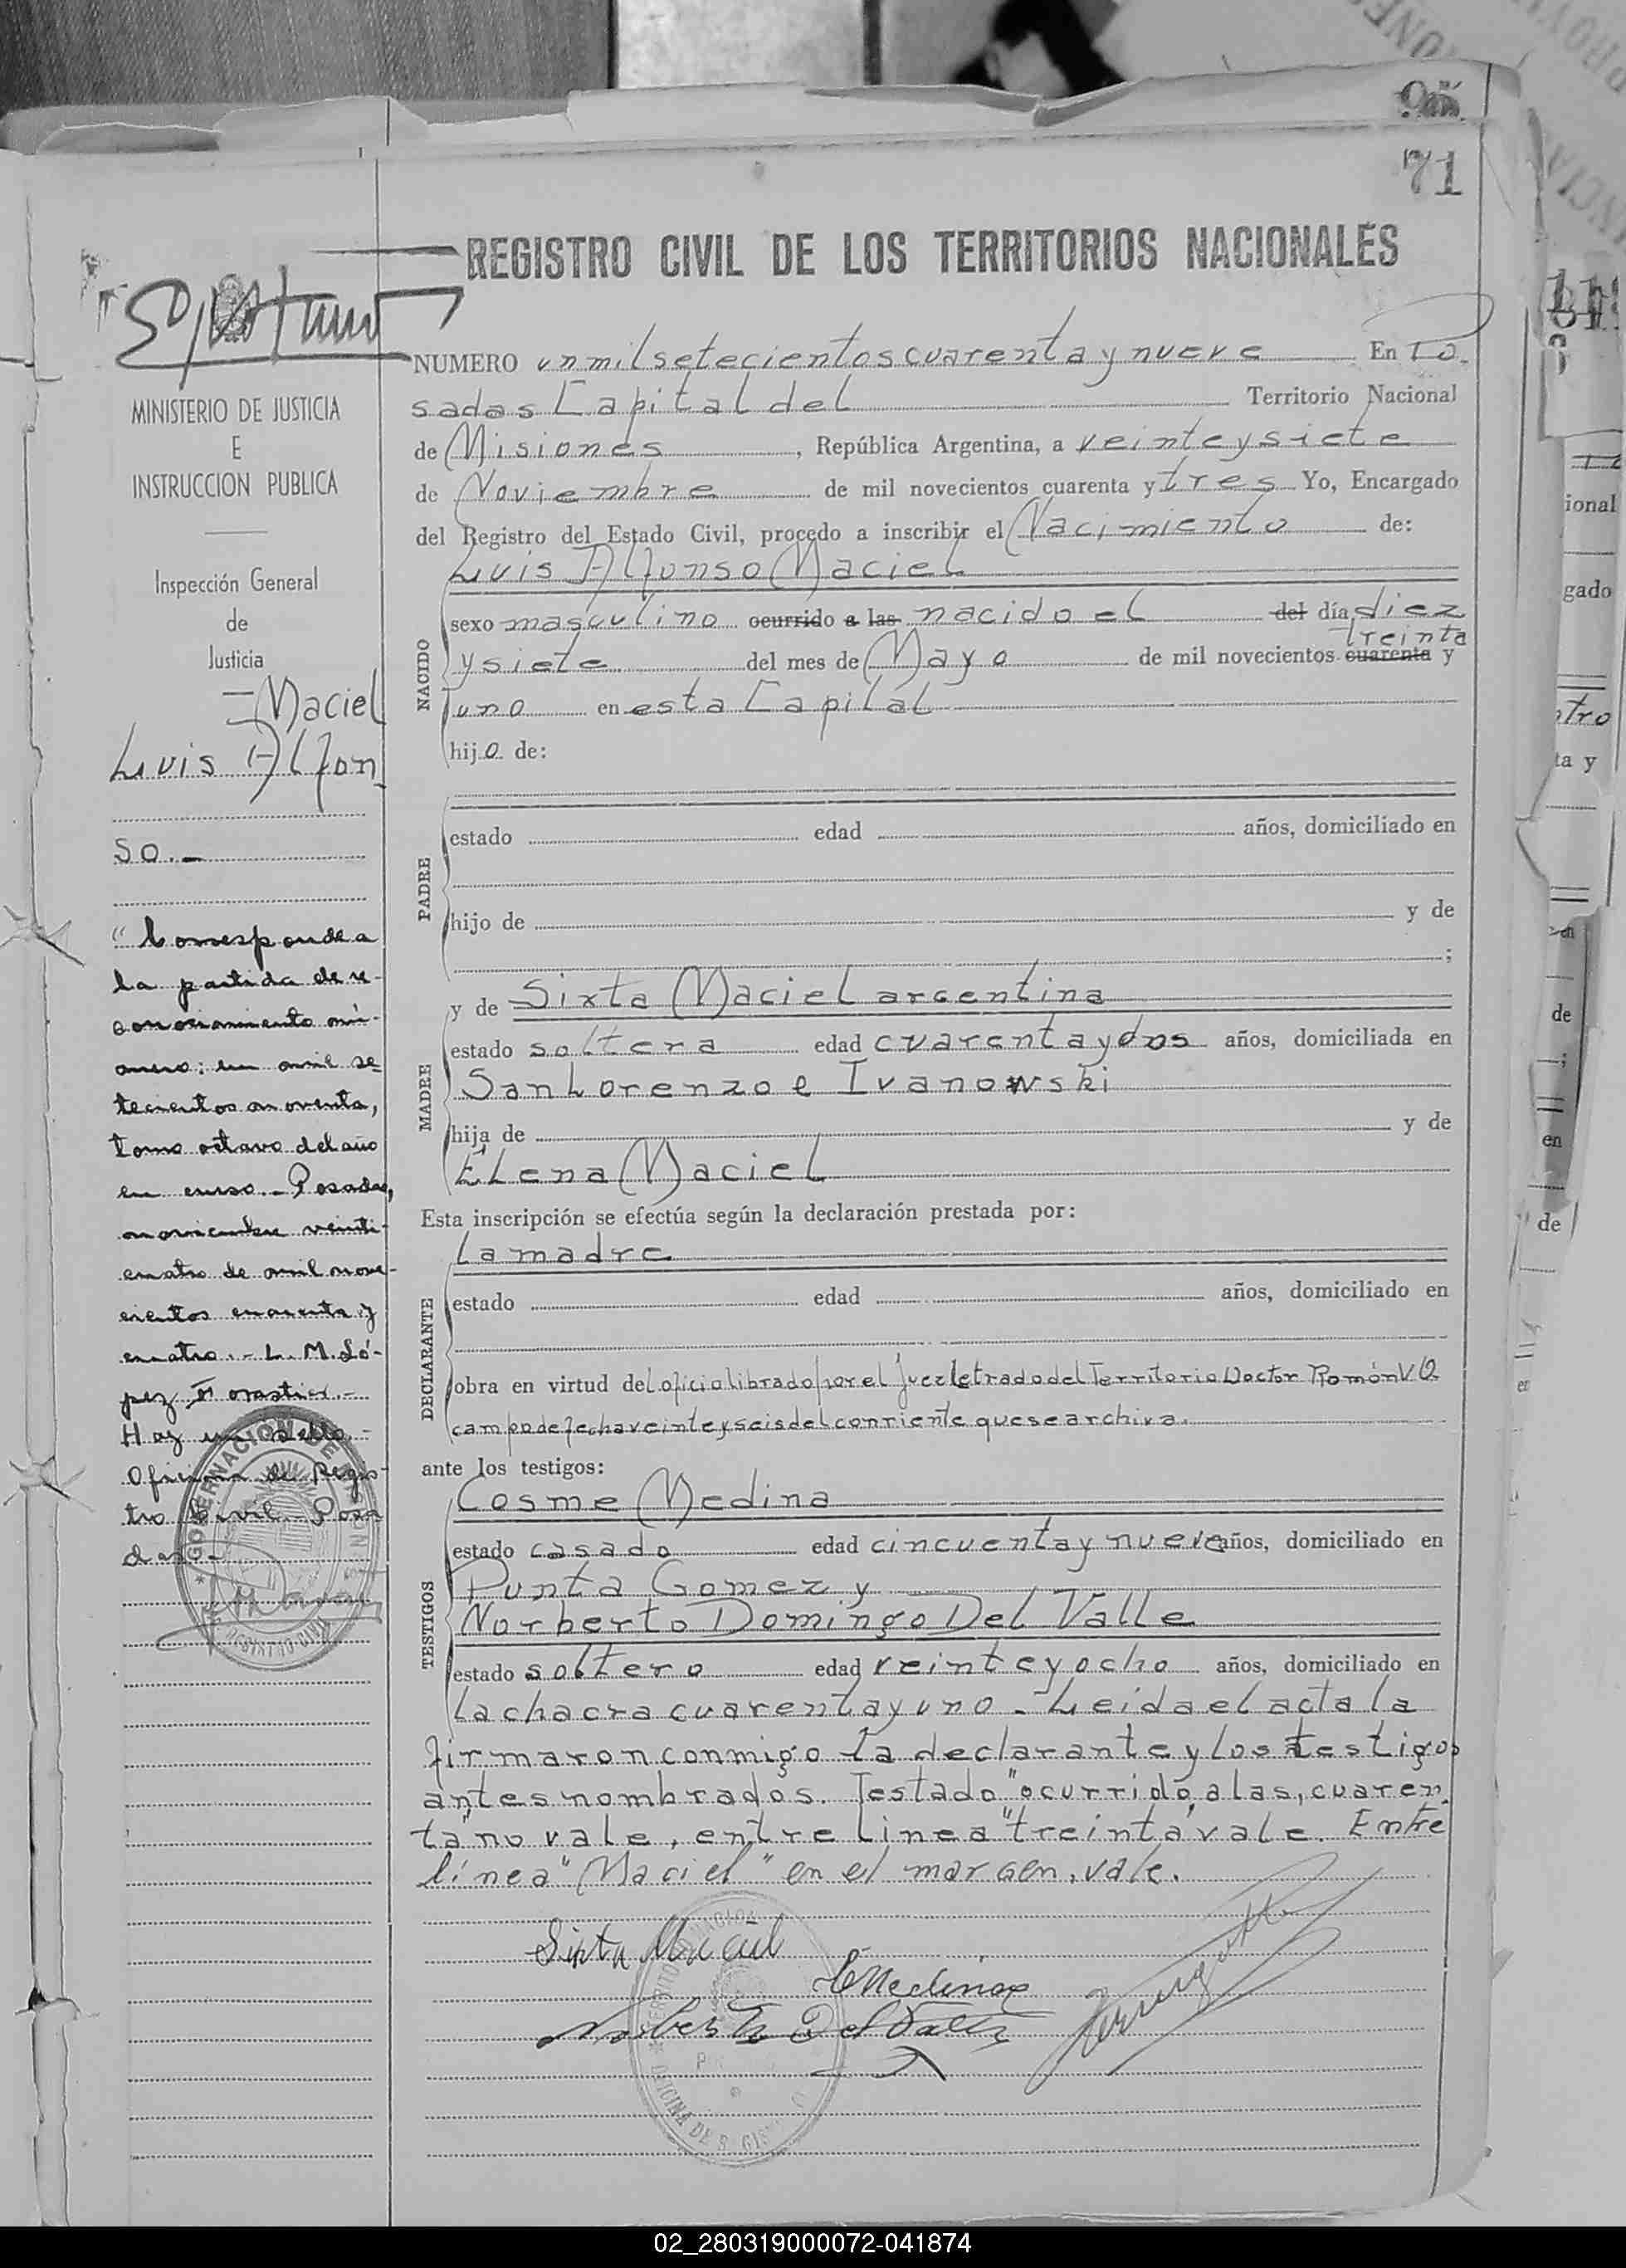 71
REGISTRO CIVIL DE LOS TERRITORIOS NACIONALES
MINISTERIO DE JUSTICIA
E
INSTRUCCION PUBLICA
Inspección General
de
Justicia
Maciel
Luis Alfon
so.-
"Corresponde a
la partida de re-
conocimiento nú-
mero: un mil se-
tecientos noventa,
tomo octavo del año
en curso.- Posadas,
noviembre veinti-
cuatro de mil nove-
cientos cuarenta y
cuatro.- L. M. Ló-
pez
Hay un sello.-
Oficina de Regis-
tro Civil - Posa
das.-
GOBERNACION DE MISIONES
REGISTRO CIVIL
NUMERO un mil setecientos cuarenta y nueve En Po-
sadas Capital del Territorio Nacional
de Misiones, República Argentina, a veinte y siete
de Noviembre de mil novecientos cuarenta y tres Yo, Encargado
del Registro del Estado Civil, procedo a inscribir el Nacimiento de:
NACIDO
Luis Alfonso Maciel
sexo masculino ocurrido a las nacido el del día diez
treinta
y siete del mes de Mayo de mil novecientos cuarenta y
uno en esta Capital
hijo de:
PADRE
estado edad años, domiciliado en
hijo de y de
;
MADRE
y de Sixta Maciel argentina
estado soltera edad cuarenta y dos años, domiciliada en
San Lorenzo e Ivanowski
hija de y de
Elena Maciel
Esta inscripción se efectúa según la declaración prestada por:
DECLARANTE
La madre
estado edad años, domiciliado en
obra en virtud del oficio librado por el Juez Letrado del Territorio Doctor Ramón V O
campo de fecha veinte y seis del corriente que se archiva.
ante los testigos:
TESTIGOS
Cosme Medina
estado casado edad cincuenta y nueve años, domiciliado en
Punta Gomez y
Norberto Domingo Del Valle
estado soltero edad veinte y ocho años, domiciliado en
La chacra cuarenta y uno - Leida el acta la
firmaron conmigo la declarante y los testigos
antes nombrados. Testado "ocurrido, a las, cuaren
ta" no vale, entre linea "treinta" vale. Entre
línea "Maciel" en el margen, vale.
Sixta Maciel
C Medina
Norberto D del Valle
02_280319000072-041874